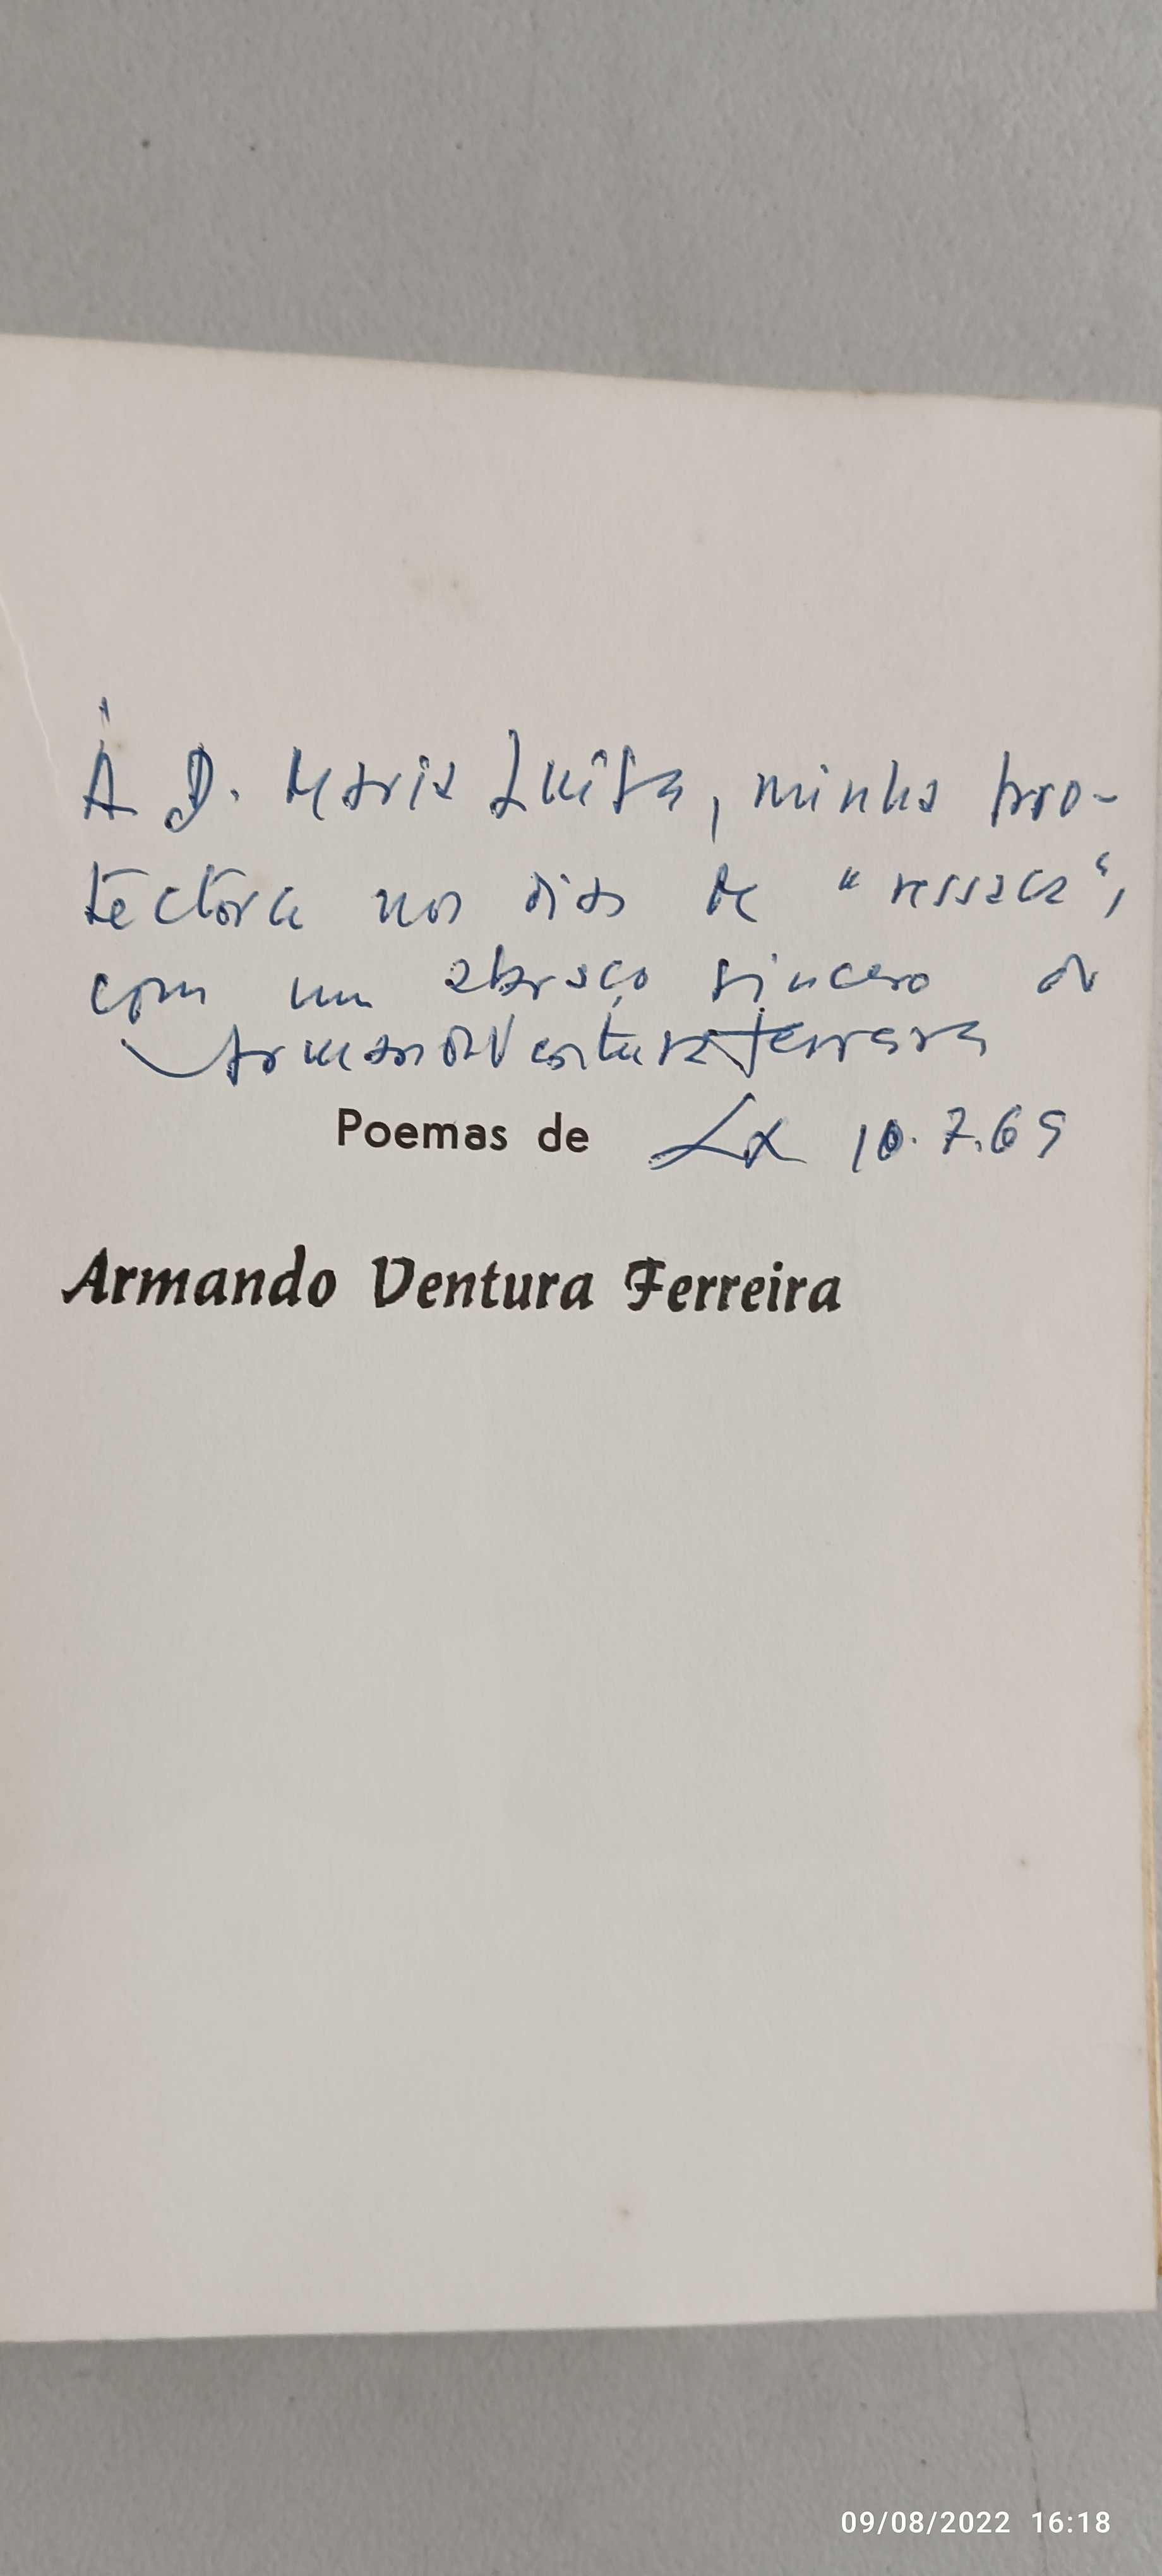 À D. Maria Luísa, minha pro-
tectora nos dias de "ressaca",
com um abraço sincero do
Armando Ventura Ferreira
Poemas de Lx 10.7.69
Armando Ventura Ferreira
09/08/2022 16:18